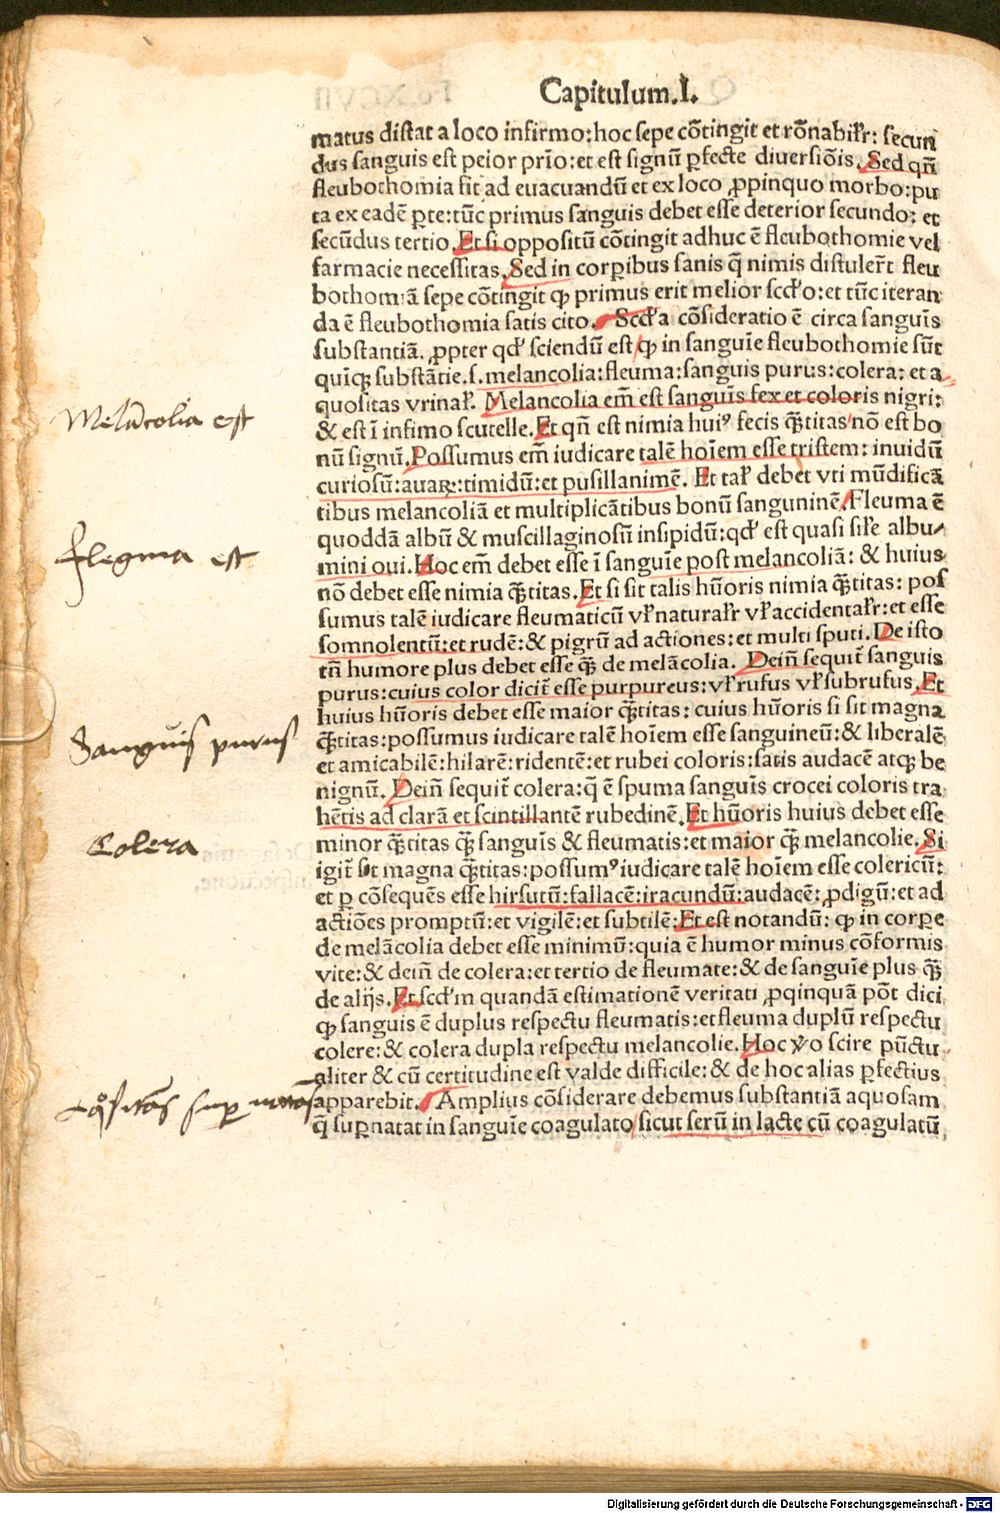 Capitulum.I.
matus distat a loco infirmo: hoc sepe cōtingit et rōnabiłr: secun
dus sanguis est peior prīo: et est signū ꝑfecte diuersiōis. Sed qn̄
fleubothomia fit ad euacuandū et ex loco ꝓpinquo morbo: pu
ta ex eadē ꝑte: tūc primus sanguis debet esse deterior secundo: et
secūdus tertio. Et si oppositū cōtingit adhuc ē fleubothomie vel
farmacie necessitas. Sed in corꝑibus sanis q̄ nimis distulerūt fleu
bothomiā sepe cōtingit ꝙ primus erit melior sccd'o: et tūc iteran
da ē fleubothomia satis cito. Sccd'a cōsideratio ē circa sanguīs
substantiā. ꝓpter qd' sciendū est/ ꝙ in sanguīe fleubothomie sūt
quīqꝫ substātie.s. melancolia: fleuma: sanguis purus: colera: et a
quositas vrinał. Melancolia em̄ est sanguīs fex et coloris nigri:
& est ī infimo scutelle. Et qn̄ est nimia huiꝰ fecis q̄titas/ nō est bo
nū signū. Possumus em̄ iudicare talē hoīem esse tristem: inuidū
curiosū: auaꝝ: timidū: et pusillanimē. Et tał debet vti mūdificā
tibus melancoliā et multiplicātibus bonū sanguninē. Fleuma ē
quoddā albū & muscillaginosū insipidū: qd' est quasi siłe albu/
mini oui. Hoc em̄ debet esse ī sanguīe post melancoliā: & huius
nō debet esse nimia q̄titas. Et si sit talis hūoris nimia q̄titas: pos
sumus talē iudicare fleumaticū vł naturałr vł accidentałr: et esse
somnolentū: et rudē: & pigrū ad actiones: et multi sputi. De isto
tn̄ humore plus debet esse q̄ꝫ de melācolia. Dein̄ sequit̄ sanguis
purus: cuius color dicit̄ esse purpureus: vł rufus vł subrufus. Et
huius hūoris debet esse maior q̄titas: cuius hūoris si sit magna
q̄titas: possumus iudicare talē hoīem esse sanguineū: & liberalē
et amicabilē: hilarē: ridentē: et rubei coloris: satis audacē atqꝫ be
nignū. Dein̄ sequit̄ colera: q̄ ē spuma sanguīs crocei coloris tra
hētis ad clarā et scintillantē rubedinē. Et hūoris huius debet esse
minor q̄titas q̄ꝫ sanguīs & fleumatis: et maior q̄ꝫ melancolie. Si
igit̄ sit magna q̄titas: possumꝰ iudicare talē hoīem esse colericū:
et ꝑ cōsequēs esse hirsutū: fallacē: iracundū: audacē: ꝓdigū: et ad
actiōes promptū: et vigilē: et subtilē: Et est notandū: ꝙ in corꝑe
de melācolia debet esse minimū: quia ē humor minus cōformis
vite: & dein̄ de colera: et tertio de fleumate: & de sanguīe plus q̄ꝫ
de alijs. Et sccd'm quandā estimationē veritati ꝓqinquā pōt dici
ꝙ sanguis ē duplus respectu fleumatis: et fleuma duplū respectu
colere: & colera dupla respectu melancolie. Hoc v̄o scire pūctu
aliter & cū certitudine est valde difficile: & de hoc alias ꝑfectius
apparebit. Amplius cōsiderare debemus substantiā aquosam
q̄ suꝑnatat in sanguīe coagulato/ sicut serū in lacte cū coagulatū,
Melācolia est
flegma est
Sanguis purus
Colera
Digitalisierung gefördert durch die Deutsche Forschungsgemeinschaft - DFG